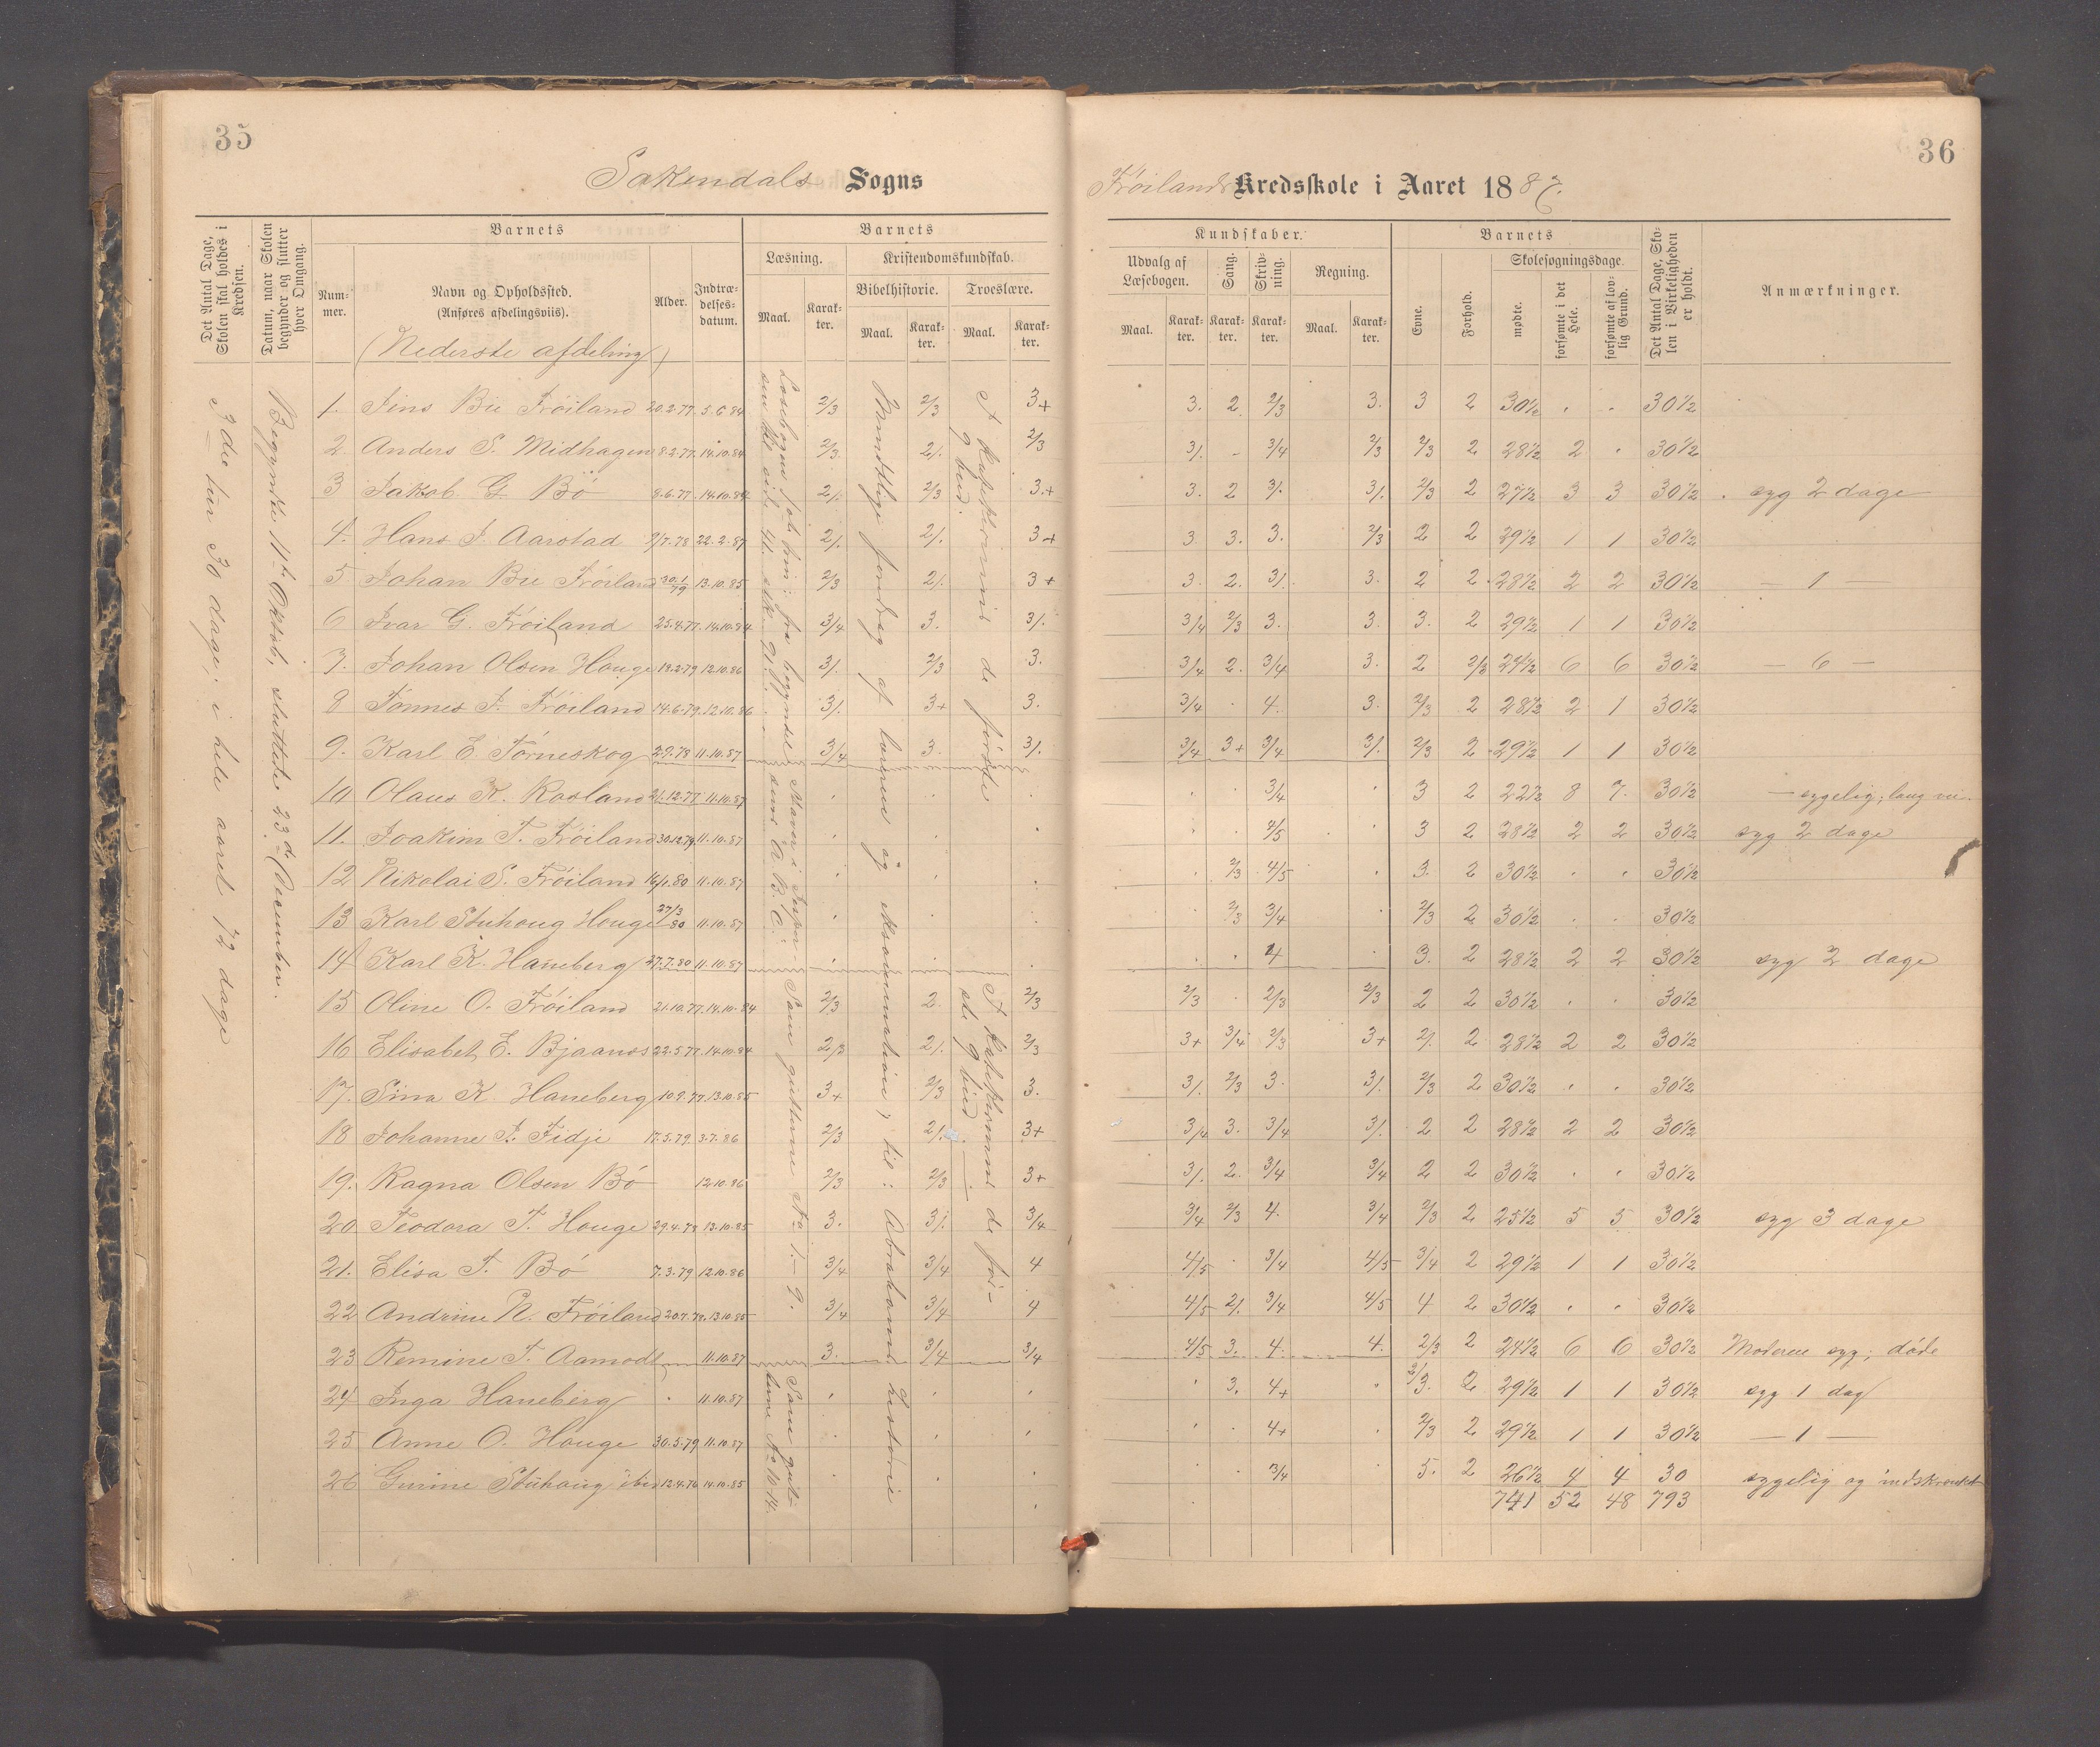 35
Sokendals Sogns
Det Antal Dage, Skolen skal holdes i Kredsen.
Datum, naar Skolen begynder og slutter hver Omgang.
Barnets
Num-mer.
Navn og Opholdssted.
(Anføres afdelingsviis).
(Nederste afdeling)
Alder.
Indtræ-delses-datum.
Barnets
Læsning.
Maal.
Karak-ter.
Kristendomskundskab.
Bibelhistorie.
Maal.
Karak-ter.
Troeslære.
Maal.
Karak-ter.
3die tur 30 dage; i hele aaret 72 dage
Begyndte 11te Oktob, sluttede 23de December.
1. Jens Bie Frøiland 20.2.77. 5.6.84 2/3 2/3 3+
2. Anders S. Midhagen 8.2.77. 14.10.84 2/3. 2/. 2/3
3 Jakob G Bø 8.6.77. 14.10.84 2/. 2/3 3.+
4. Hans J. Aarstad 2/7.78 22.2.87 2/. 2/. 3+
5 Johan Bie Frøiland 30.1/79 13.10.85 2/3 2/. 3+
6 Ivar G. Frøiland 25.4.77. 14.10.84 3/4 3. 3/.
7. Johan Olsen Houge 19.2.79 12.10.86 3/. 2/3 3.
8 Tønnes J. Frøiland 14.6.79. 12.10.86 3/. 3+ 3.
9. Karl E Tørneskog 2.9.78 11.10.87 3/4 3. 3/.
10 Olaus K. Rosland 21.12.77 11.10.87
11. Joakim T. Frøiland 30.12.79 11.10.87
12 Nikolai S. Frøiland 16/1.80 11.10.87
13 Karl Stuhoug Houge 27/3 80 11.10.87
14 Karl K. Haneberg 27.7.80 11.10.87
15 Oline O. Frøiland 21.10.77. 14.10.84 2/3 2. 2/3
16 Elisabet E. Bjaanes 22.5.77. 14.10.84 2/3 2/. 2/3
17. Sina K. Haneberg 10.9.77. 13.10.85 3+ 2/3 3.
18 Johanne J. Fidje 17.5.79. 3.7.86 2/3 2/. 3+
19. Ragna Olsen Bø 12.10.86 2/3 2/3 3+
20 Teodora T. Houge 29.4.78 13.10.85 3. 3/. 3/4
21. Elisa T. Bø 7.3.79 12.10.86 3/4 3/4 4
22 Andrine N. Frøiland 20.7.78. 13.10.85 3/4 3/4 4
23 Remine T. Aamodt 11.10.87 3. 3/4 3/4
24 Inga Haneberg 11.10.87
25 Anne O. Houge 30.5.79 11.10.87
26 Gurine Stuhaug 12.4.76 14.10.85
Mundtlige foredrag af læreren og eksamination; til: Abrahams historie
Som guttene No 1–9.
36
Frøilands Kredsskole i Aaret 1887.
Kundskaber.
Udvalg af Læsebogen.
Maal.
Karak-ter.
Sang.
Karak-ter.
Skriv-ning.
Karak-ter.
Regning.
Maal.
Karak-ter.
Barnets
Evne.
Forhold.
Skolesøgningsdage.
mødte.
forsømte i det Hele.
forsømte af lov-lig Grund.
Det Antal Dage, Sko-len i Virkeligheden er holdt.
Anmærkninger.
3. 2. 2/3 3. 3 2 30½ 30½
3/. - 3/4 2/3 2/3 2 28½ 2 30½
3. 2 3/. 3/. 2/3 2 27½ 3 3 30½ syg 2 dage
3 3. 3. 2/3 2 2 29½ 1 1 30½
3. 2. 3/. 3. 2 2 28½ 2 2 30½ — 1 —
3/4 2/3 3. 3. 3. 2 29½ 1 1 30½
3/4 2. 3/4 3. 2 2/3 24½ 6 6 30½ — 6 —
3/4 . 4. 3. 2/3 2 28½ 2 1 30½
3/4 3+ 3/4 3/. 2/3 2 29½ 1 1 30½
3/4 3 2 22½ 8 7. 30½ — sygelig; lang vei.
4/5 3 2 28½ 2 2 30½ syg 2 dage
2/3 4/5 3. 2 30½ 30½
2/3 3/4 2/3 2 30½ 30½
4 3. 2 28½ 2 2 30½ syg 2 dage
2/3 . 2/3 2/3 2 2 30½ 30½
3+ 3/4 2/3 3+ 2/. 2 28½ 2 2 30½
3/. 2/3 3. 3/. 2/3 2 30½ 30½
3/4 3. 3/4 3/. 2 2 28½ 2 2 30½
3/. 2. 3/4 3/4 2 2 30½ 30½
3/4 2/3 4. 3/4 2/3 2 25½ 5 5 30½ syg 3 dage
4/5 . 3/4 4/5 3/4 2 29½ 1 1 30½
4/5 2/. 3/4 4/5 4 2 30½ 30½
4/5 3. 4. 4. 2/3 2 24½ 6 6 30½ Moderen syg; døde
3. 4+ 2/3. 2 29½ 1 1 30½ syg 1 dag
4+ 2/3 2 29½ 1 1 30½ — 1 —
3/4 5. 2 26½ 4 4 30 sygelig og indskrænket
741 52 48 793